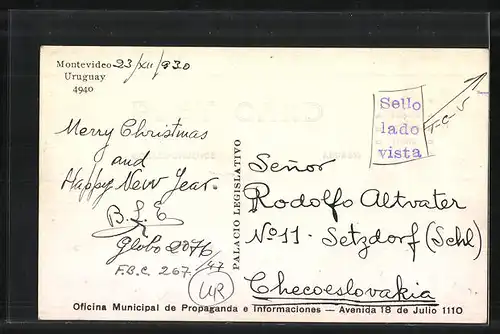 Montevideo 23/XII/930
Uruguay
4940
Merry Christmas
and
Happy New Year.
B.L.E
Globo 2076
F.B.C. 267/47
UR
PALACIO LEGISLATIVO
Sello
lado
vista
T-C-V
Señor
Rodolfo Altvater
Nº11- Setzdorf (Schl)
Checoeslovakia
Oficina Municipal de Propaganda e Informaciones — Avenida 18 de Julio 1110